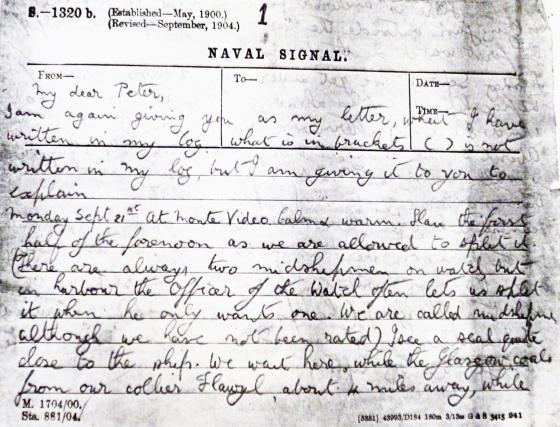 S.—1320 b. (Established—May, 1900.)
(Revised—September, 1904.)
1
NAVAL SIGNAL.
FROM— TO— DATE—
TIME—
My dear Peter,
I am again giving you as my letter, what I have
written in my log. What is in brackets ( ) is not
written in my log, but I am giving it to you to
explain
Monday Sept 21st At Monte Video. Calm & warm. I have the first
half of the forenoon as we are allowed to split it.
(There are always two midshipmen on watch but
in harbour the Officer of the Watch often lets us split
it when he only wants one. We are called midshipmen
although we have not been rated) I see a seal quite
close to the ship. We wait here, while the Glasgow coals
from our collier about 4 miles away, while
M. 1704/00.
Sta. 881/04.
[5851] 43993/D184 180m 3/13 G & S 3415 941